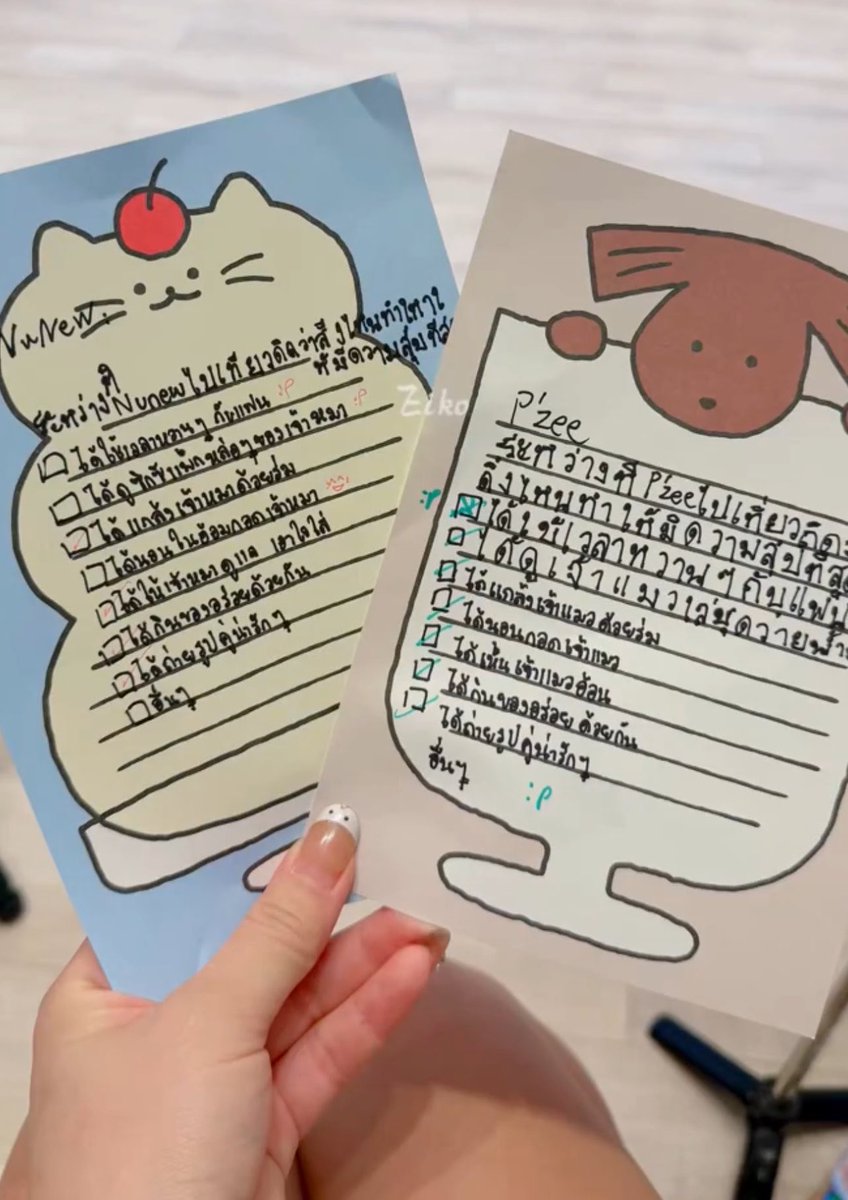 NuNew.
ระหว่างที่ Nunew ไปเที่ยวคิดว่าสิ่งไหนทำให้
มีความสุขที่สุ
ได้ใช้เวลาหวานๆ กับแฟน :P
ได้ดูซิกซ์แพ็กหล่อๆของเจ้าหมา :P
ได้แกล้งเจ้าหมาด้วยร่ม
ได้นอนในอ้อมกอดเจ้าหมา
ได้ให้เจ้าหมาดูแล เอาใจใส่
ได้กินของอร่อยด้วยกัน
ได้ถ่ายรูปคู่น่ารักๆ
อื่นๆ
Ziko
P'zee
ระหว่างที่ P'zee ไปเที่ยวคิด
สิ่งไหนทำให้มีความสุขที่สุด
:P ได้ใช้เวลาหวานๆกับแฟน
ได้ดูเจ้าแมวใส่ชุดว่ายน้ำ
ได้แกล้งเจ้าแมวด้วยร่ม
ได้นอนกอดเจ้าแมว
ได้เห็นเจ้าแมวอ้อน
ได้กินของอร่อยด้วยกัน
ได้ถ่ายรูปคู่น่ารักๆ
อื่นๆ :P